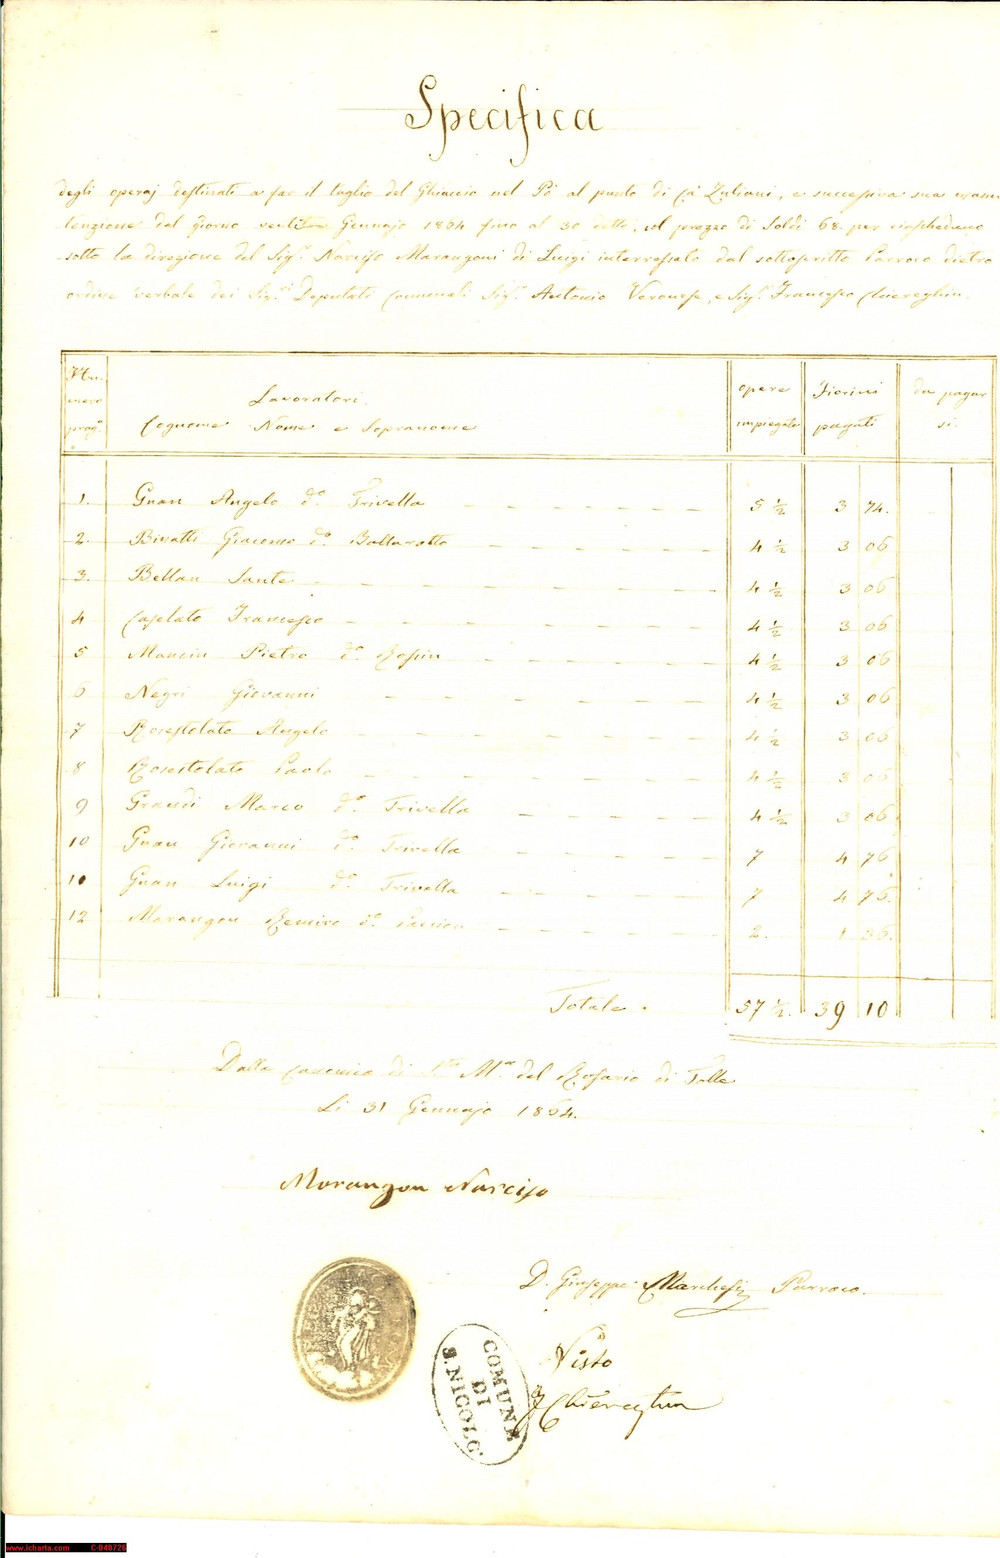 Specifica
degli operaj destinati a far il taglio del Ghiaccio nel Pò al punto di Cà Zuliani, e successiva sua
tenzione dal giorno Gennajo 1864 fino al 30 detto, al prezzo di Soldi 68. per ciascheduno
sotto la direzione del Sigr. Narciso Marangoni di Luigi interressato dal sottoscritto Parroco dietro
ordine verbale dei Sigri Deputati Comunali Sigr. Antonio Veronese, e Sigr. Francesco Chiereghin.
Nu-
mero
prog.
Lavoratori.
Cognome Nome e Sopranome
opere
impiegate
Fiorini
pagati
da pagar
si.
1. Gnan Angelo do. Trivella 5 ½ 3 74.
2. Giacomo do. Ballarotto 4 ½ 3 06
3. Bellan Sante 4 ½ 3 06
4 Caselato Francesco 4 ½ 3 06
5 Mancin Pietro do. 4 ½ 3 06
6 Negri Giovanni 4 ½ 3 06
7 Rosestolato Angelo 4 ½ 3 06
8 Rosestolato Paolo 4 ½ 3 06
9 Grandi Marco do. Trivella 4 ½ 3 06
10 Gnan Giovanni do. Trivella 7 4 76
10 Gnan Luigi do. Trivella 7 4 76.
12 Marangon do. 2. 1 36.
Totale. 57 ½. 39 10
Dalla Canonica di S.ta M.a del Rosario di Tolle
Li 31 Gennajo 1864.
Marangon Narciso
D. Giuseppe Marchesi Parroco.
Visto
F Chiereghin
COMUNE
DI
S. NICOLO'.
www.icharta.com C-040726